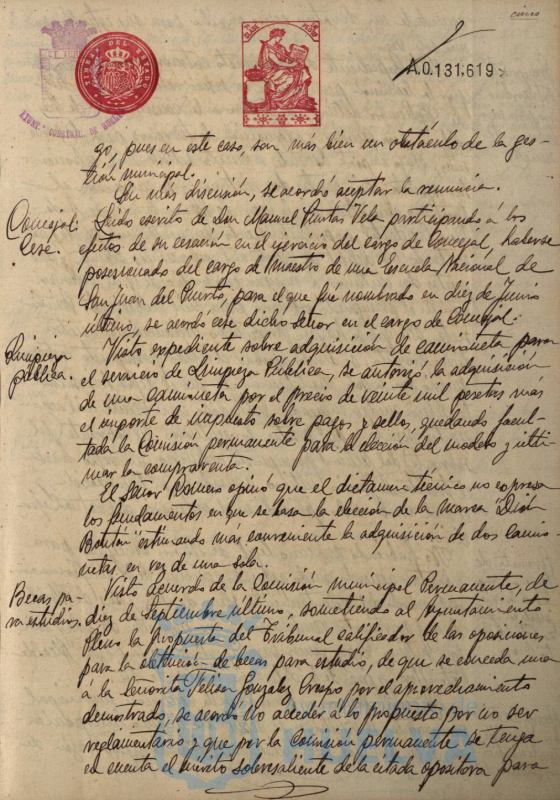 cinco
A.0.131.619
TIMBRE DEL ESTADO
go, pues en este caso, son más bien un obstáculo de la ges-
tión municipal.
Sin más discusión, se acordó aceptar la renuncia.
Concejal:
Cese.
Leído escrito de Don Manuel Puntas Vela participando á los
efectos de su cesación en el ejercicio del cargo de Concejal, haberse
posesionado del cargo de Maestro de una Escuela Nacional de
San Juan del Puerto, para el que fué nombrado en diez de Junio
último, se acordó cese dicho señor en el cargo de Concejal.
Limpieza
pública.
Visto expediente sobre adquisición de camioneta para
el servicio de Limpieza Pública, se autorizó la adquisición
de una camioneta por el precio de veinte mil pesetas más
el importe de impuesto sobre pagos y sellos, quedando facul-
tada la Comisión permanente para la elección del modelo y ulti-
mar la compraventa.
El Señor Romero opinó que el dictamen técnico no expresa
los fundamentos en que se basa la elección de la marca "Dion
Boutón" estimando más conveniente la adquisición de dos camio-
netas en vez de una sola.
Becas pa-
ra estudios.
Visto acuerdo de la Comisión municipal Permanente, de
diez de Septiembre último, sometiendo al Ayuntamiento
Pleno la propuesta del Tribunal calificador de las oposiciones
para la obtención de becas para estudio, de que se conceda una
á la Señorita Felisa González Crespo por el aprovechamiento
demostrado, se acordó no acceder á lo propuesto por no ser
reglamentario y que por la Comisión permanente se tenga
en cuenta el mérito sobresaliente de la citada opositora para